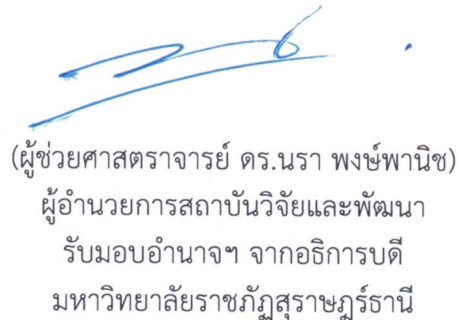 (ผู้ช่วยศาสตราจารย์ ดร.นรา พงษ์พานิช)
ผู้อำนวยการสถาบันวิจัยและพัฒนา
รับมอบอำนาจฯ จากอธิการบดี
มหาวิทยาลัยราชภัฏสุราษฎร์ธานี